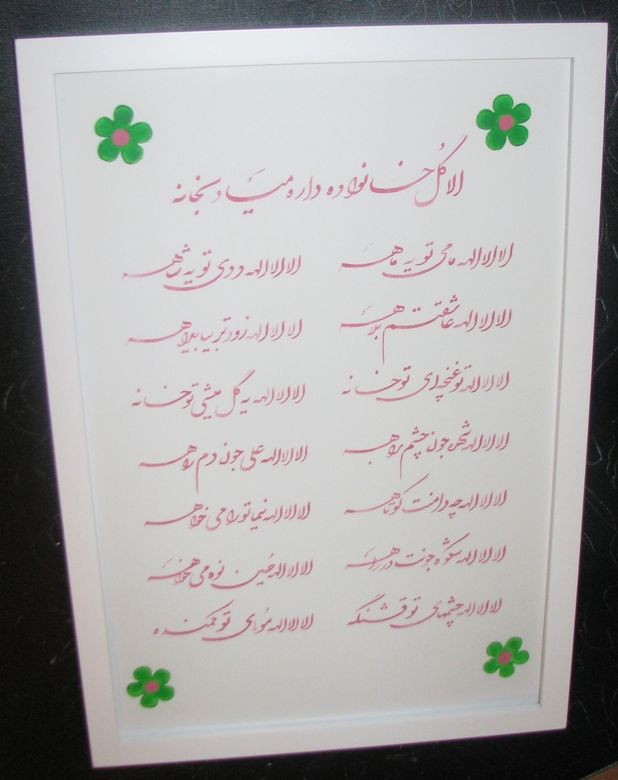 الا گل خانواده داره میاد بخانه
لا لا لا لاله مامی تو یه ماهه لا لا لا لاله ددی تو یه شاهه
لا لا لا لاله عاشقتم بلاهه لا لا لا لاله زودتر بیا بیا
لا لا لا لاله تو غنچه‌ای تو خانه لا لا لا لاله یه گل میشی تو خانه
لا لا لا لاله شهره جون چشم براهه لا لا لا لاله علی جون دم راهه
لا لا لا لاله چه دامنت کوتاهه لا لا لا لاله نیما تو را می‌خواهه
لا لا لا لاله شکوه جونت در راهه لا لا لا لاله حسین نوه می‌خواهه
لا لا لا لاله چشمهای تو قشنگه لا لا لا لاله موهای تو کمنده